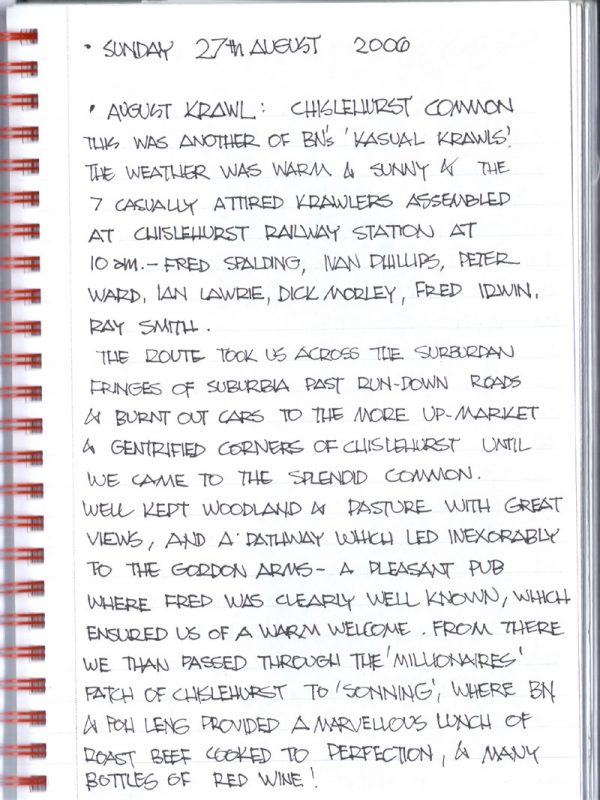 • SUNDAY 27TH AUGUST 2006
• AUGUST KRAWL: CHISLEHURST COMMON
THIS WAS ANOTHER OF BN'S 'KASUAL KRAWLS'.
THE WEATHER WAS WARM & SUNNY & THE
7 CASUALLY ATTIRED KRAWLERS ASSEMBLED
AT CHISLEHURST RAILWAY STATION AT
10 am.- FRED SPALDING, IVAN PHILLIPS, PETER
WARD, IAN LAWRIE, DICK MORLEY, FRED IRWIN,
RAY SMITH.
THE ROUTE TOOK US ACROSS THE SURBURDAN
FRINGES OF SUBURBIA PAST RUN-DOWN ROADS
& BURNT OUT CARS TO THE MORE UP-MARKET
& GENTRIFIED CORNERS OF CHISLEHURST UNTIL
WE CAME TO THE SPLENDID COMMON.
WELL KEPT WOODLAND & PASTURE WITH GREAT
VIEWS, AND A PATHWAY WHICH LED INEXORABLY
TO THE GORDON ARMS - A PLEASANT PUB
WHERE FRED WAS CLEARLY WELL KNOWN, WHICH
ENSURED US OF A WARM WELCOME. FROM THERE
WE THAN PASSED THROUGH THE 'MILLIONAIRES'
PATCH OF CHISLEHURST TO 'SONNING', WHERE BN
& POH LENG PROVIDED A MARVELLOUS LUNCH OF
ROAST BEEF COOKED TO PERFECTION, & MANY
BOTTLES OF RED WINE!